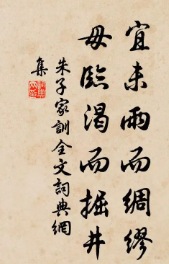 宜未雨而綢繆
毋臨渴而掘井
朱子家訓全文詞典網
集